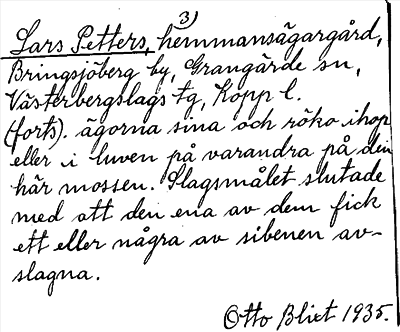 3)
Lars Petters, hemmansägargård,
Bringsjöberg by, Grangärde sn,
Västerbergslags tg, Kopp l.
(forts). ägorna sina och röko ihop
eller i luven på varandra på den
här mossen. Slagsmålet slutade
med att den ena av dem fick
ett eller några av sibenen av-
slagna.
Otto Blixt 1935.